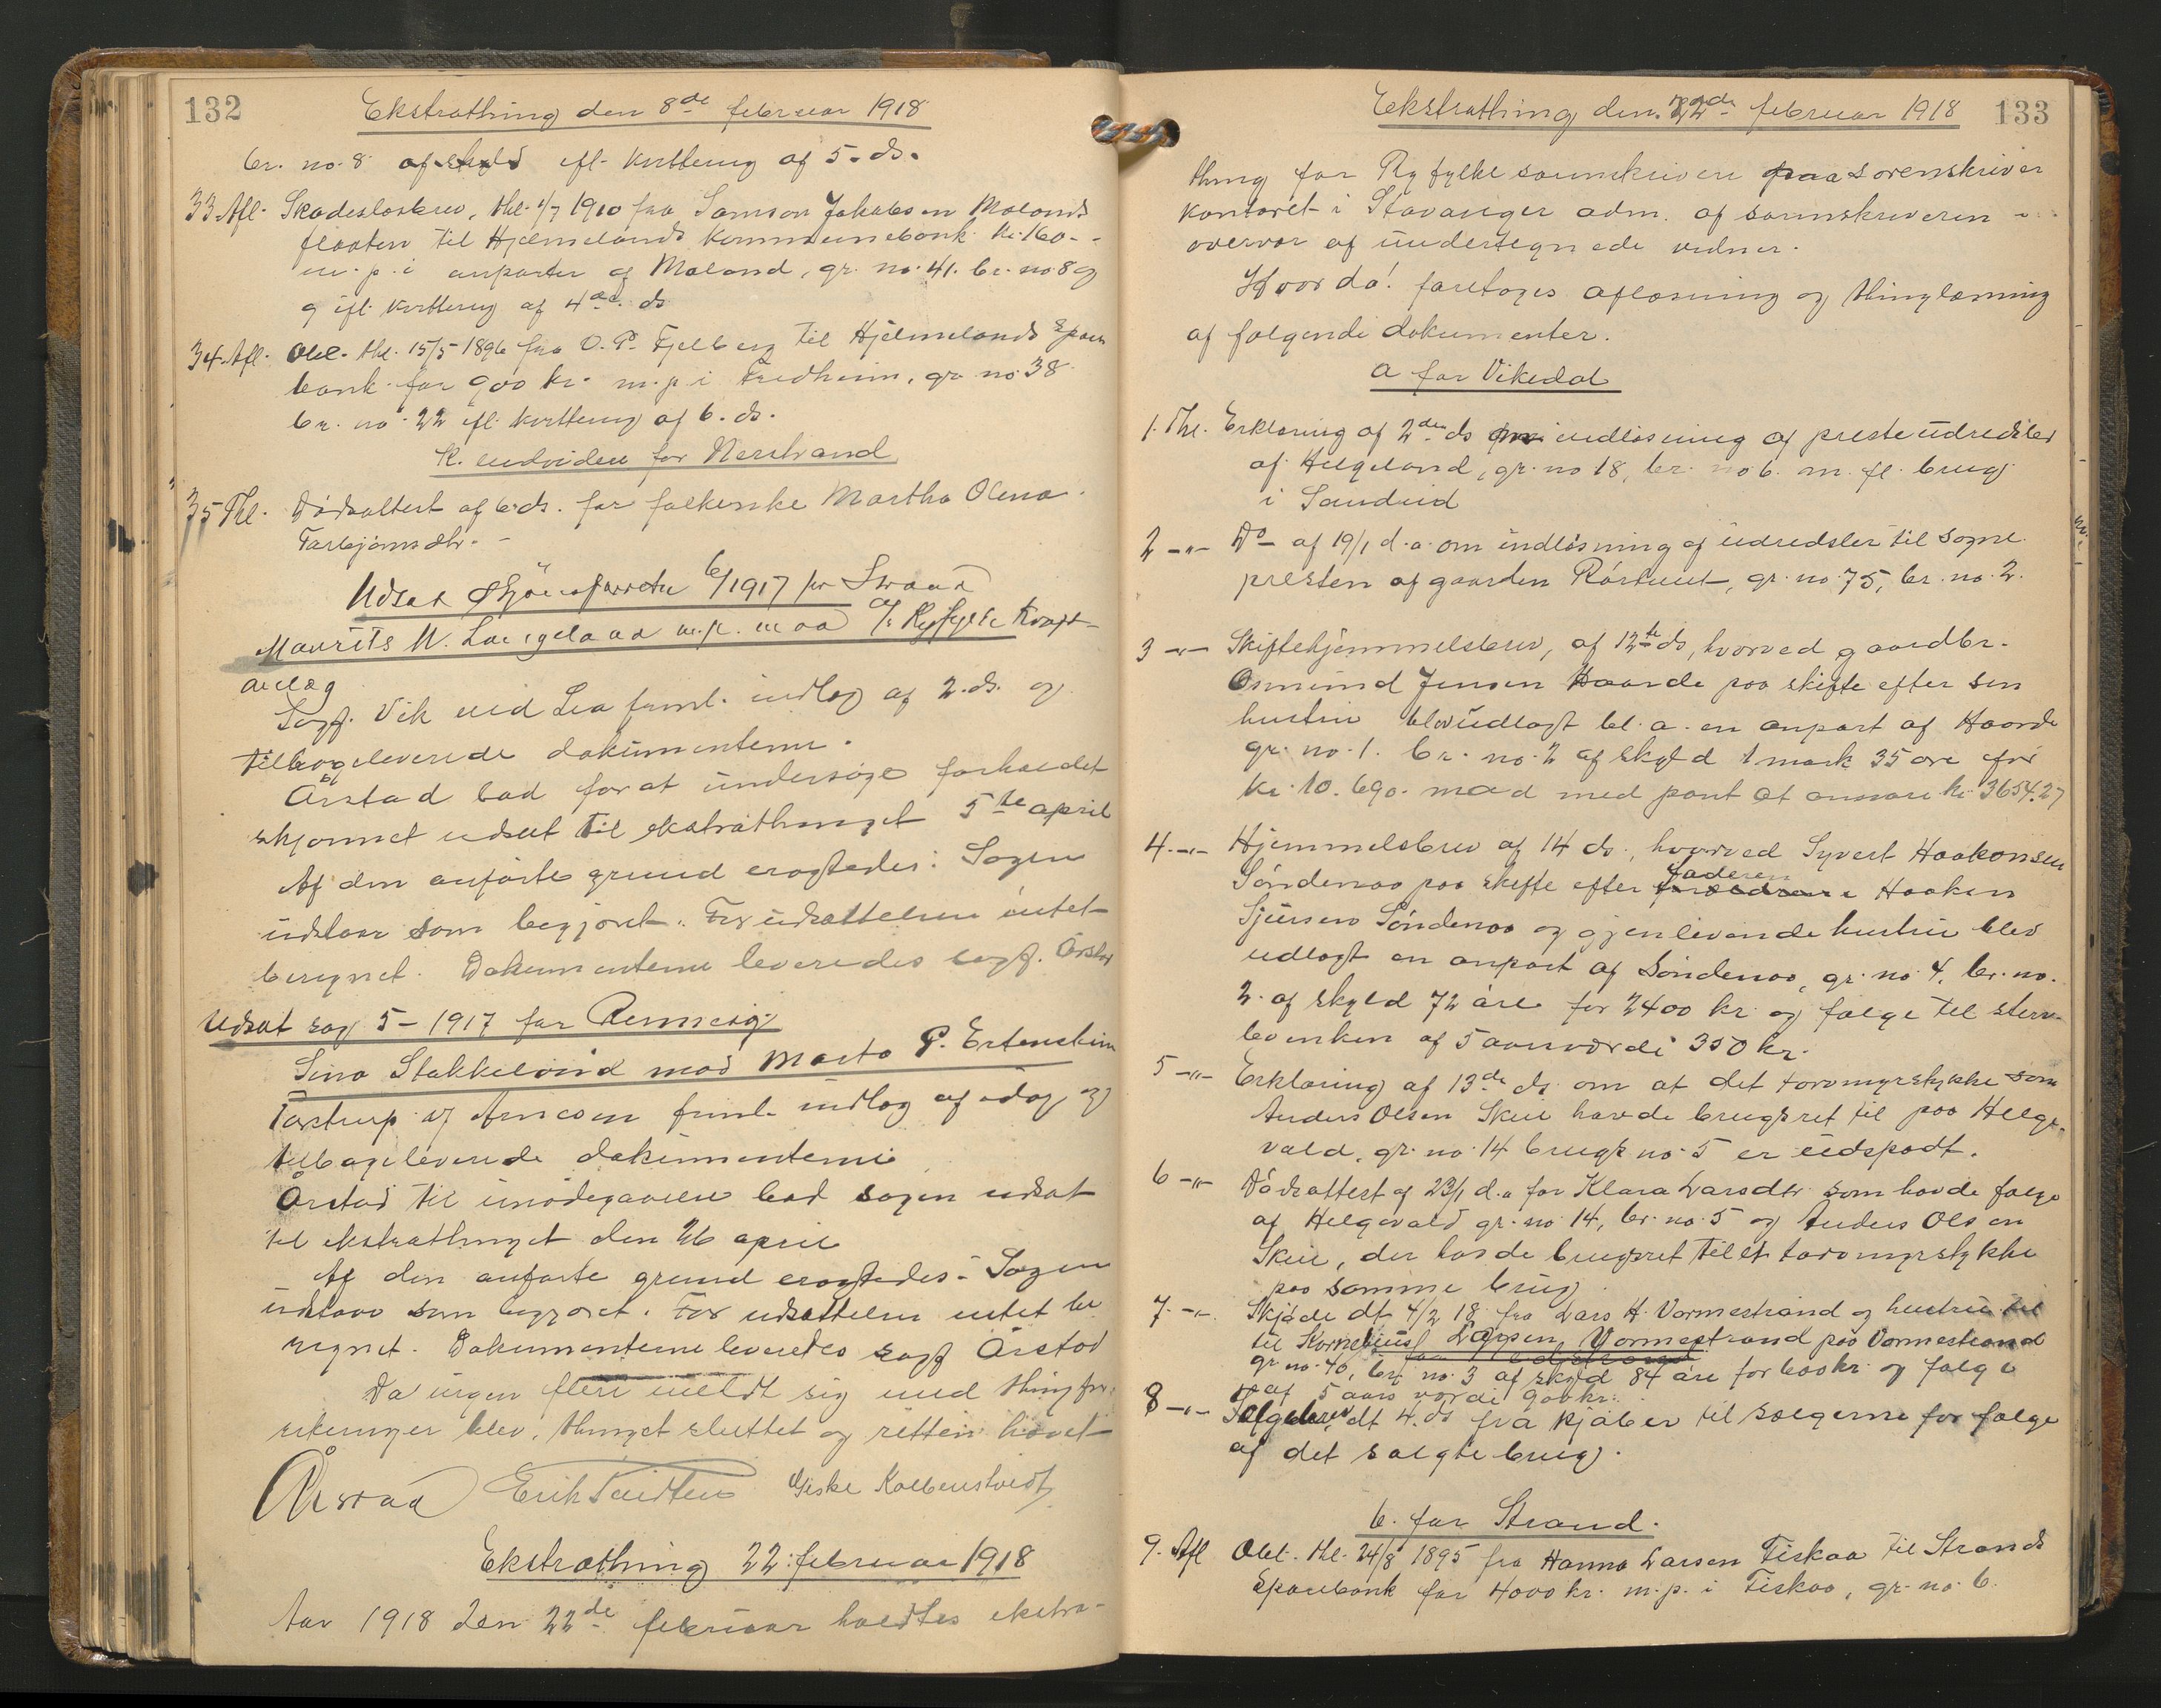 132
Ekstrathing den 8de februar 1918
br. no. 8 af skyld ifl. kvittering af 5. ds.
33 Afl. Skadesløsbrev, thl. 1/7 1910 fra Samson Jakobsen Molands
flaaten til Hjelmelands Kommunebank kr. 160.-
m. p. i anparter af Moland, gr. no. 41. br. no. 8 og
9 ifl. kvittering af 4de ds
34. Afl. Obl. thl. 15/5 1896 fra O. P. Fjelberg til Hjelmelands Spare
bank for 900 kr. m. p. i Fredheim, gr. no. 38
br. no. 22 ifl. kvittering af 6. ds.
K. endvidere for Nerstrand
35 Thl. Dødsattest af 6. ds. for folkerske Martha Olena
Torbjørnsdtr.
Udsat skjønsforretn 6/1917 for Strand
Maurits W. Langeland m. fl. mod A/s Ryfylke Kraft-
anlæg
Sagf. Vik ved Lea freml. indlæg af 2. ds. og
tilbageleverede dokumenterne.
Årstad bad for at undersøge forholdet
skjønnet udsat til ekstrathinget 5te april
Af den anførte grund eragtedes: Sagen
udstaar som begjæret. For udsættelsen intet
beregnet. Dokumenterne leveredes sagf. Årstad
Udsat sag 5 - 1917 for Rennesø
Sina Stakkeland mod Marta P. Ertensten
Tastrup af Arnesen freml. indlæg af idag og
tilbageleverede dokumenterne
Årstad til imødegaaelse bad sagen udsat
til ekstrathinget den 26 april
Af den anførte grund eragtedes: Sagen
udstaar som begjæret. For udsættelsen intet be
regnet. Dokumenterne leveredes sagf Årstad
Da ingen flere meldt sig med thingfor-
retninger blev thinget sluttet og retten hævet
Årstad Giske Kolbenstvedt
Ekstrathing 22 februar 1918
Aar 1918 den 22de februar holdtes ekstra-
Ekstrathing den 22de februar 1918
133
thing for Ryfylke sorenskriveri paa sorenskriver
kontoret i Stavanger adm. af sorenskriveren i
overvær af undertegnede vidner.
Hvorda! foretoges aflæsning og thinglæsning
af følgende dokumenter.
a for Vikedal
1. Thl. Erklæring af 2den ds om indløsning af presteudredsler
af Helgeland, gr. no 18, br. no 6. m. fl. brug
i Sandeid
2 -"- Do af 19/1 d. a. om indløsning af udredsler til sogne
presten af gaarden Rørtveit, gr. no. 75, br. no. 2.
3 -"- Skiftehjemmelsbrev, af 12te ds, hvorved gaardbr.
Osmund Jensen Haarde paa skifte efter sin
hustru blev udlagt bl. a. en anpart af Haarde
gr. no. 1. br. no. 2 af skyld 1 mark 35 øre for
kr. 10.690. mod med pant at ansvare kr. 3654.27
4. -"- Hjemmelsbrev af 14 ds., hvorved Syvert Haakonsen
Søndenaa paa skifte efter faderen Haakon
Sjursen Søndenaa og gjenlevende hustru blev
udlagt en anpart af Søndenaa, gr. no. 4, br. no.
2. af skyld 72 øre for 2400 kr. og følge til sterv-
boenken af 5 aarsværdi 350 kr.
5 -"- Erklæring af 13de ds. om at det torvmyrstykke som
Anders Olsen Skeie havde brugsret til paa Helge-
vold, gr. no. 14 brugs no. 5 er udspadt.
6 -"- Dødsattest af 23/1 d.a for Klara Larsdtr som havde følge
af Helgevold gr. no. 14, br. no. 5 og Anders Olsen
Skeie, der havde brugsret til et torvmyrstykke
paa samme brug
7. -"- Skjøde dt 4/2 18 fra Lars H. Vormestrand og hustru
til Kornelius Larsen Vormestrand paa Vormestrand
gr. no. 40, br. no. 3 af skyld 84 øre for 600 kr. og følge
af 5 aars værdi 900 kr.
8 -"- Følgebrev dt 4. ds fra kjøber til sælgerne for følge
af det solgte brug.
b. for Strand.
9. Afl Obl. thl. 24/8 1895 fra Hanna Larsen Fiskaa til Strands
Sparebank for 4000 kr. m. p. i Fiskaa, gr. no. 6.